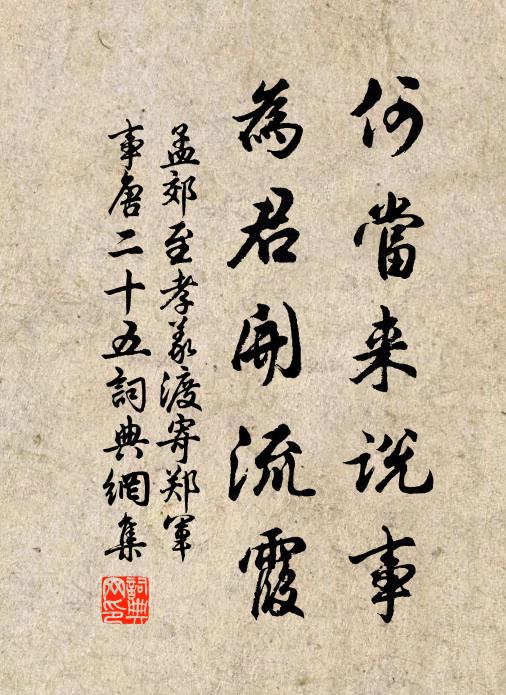 何當来説事
為君開流霞
孟郊至孝義渡寄鄭軍
事唐二十五詞典網集
詞典
网印